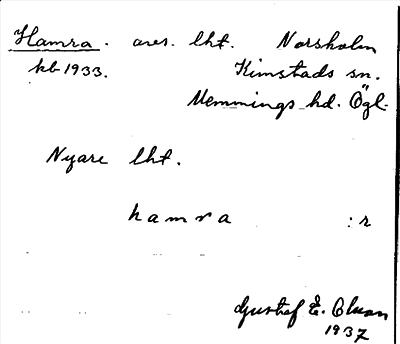 Hamra. avs. lht. Norsholm
kb 1933. Kimstads sn.
Memmings hd. Ögl.
Nyare lht.
hamra :r
Gustaf E. Olsson
1937